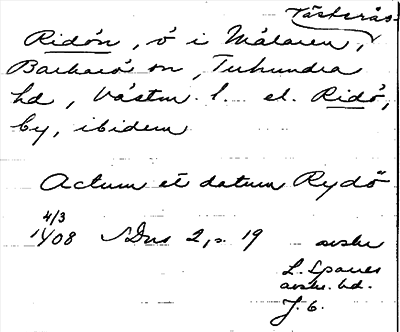 Västerås-
Ridön, ö i Mälaren,
Barkarö sn, Tuhundra
hd, Västm. l. el. Ridö,
by, ibidem
Actum et datum Rydö
4/3
1408 SDns 2, s. 19 avskr
L. Spares
avskr. bd.
J. G.